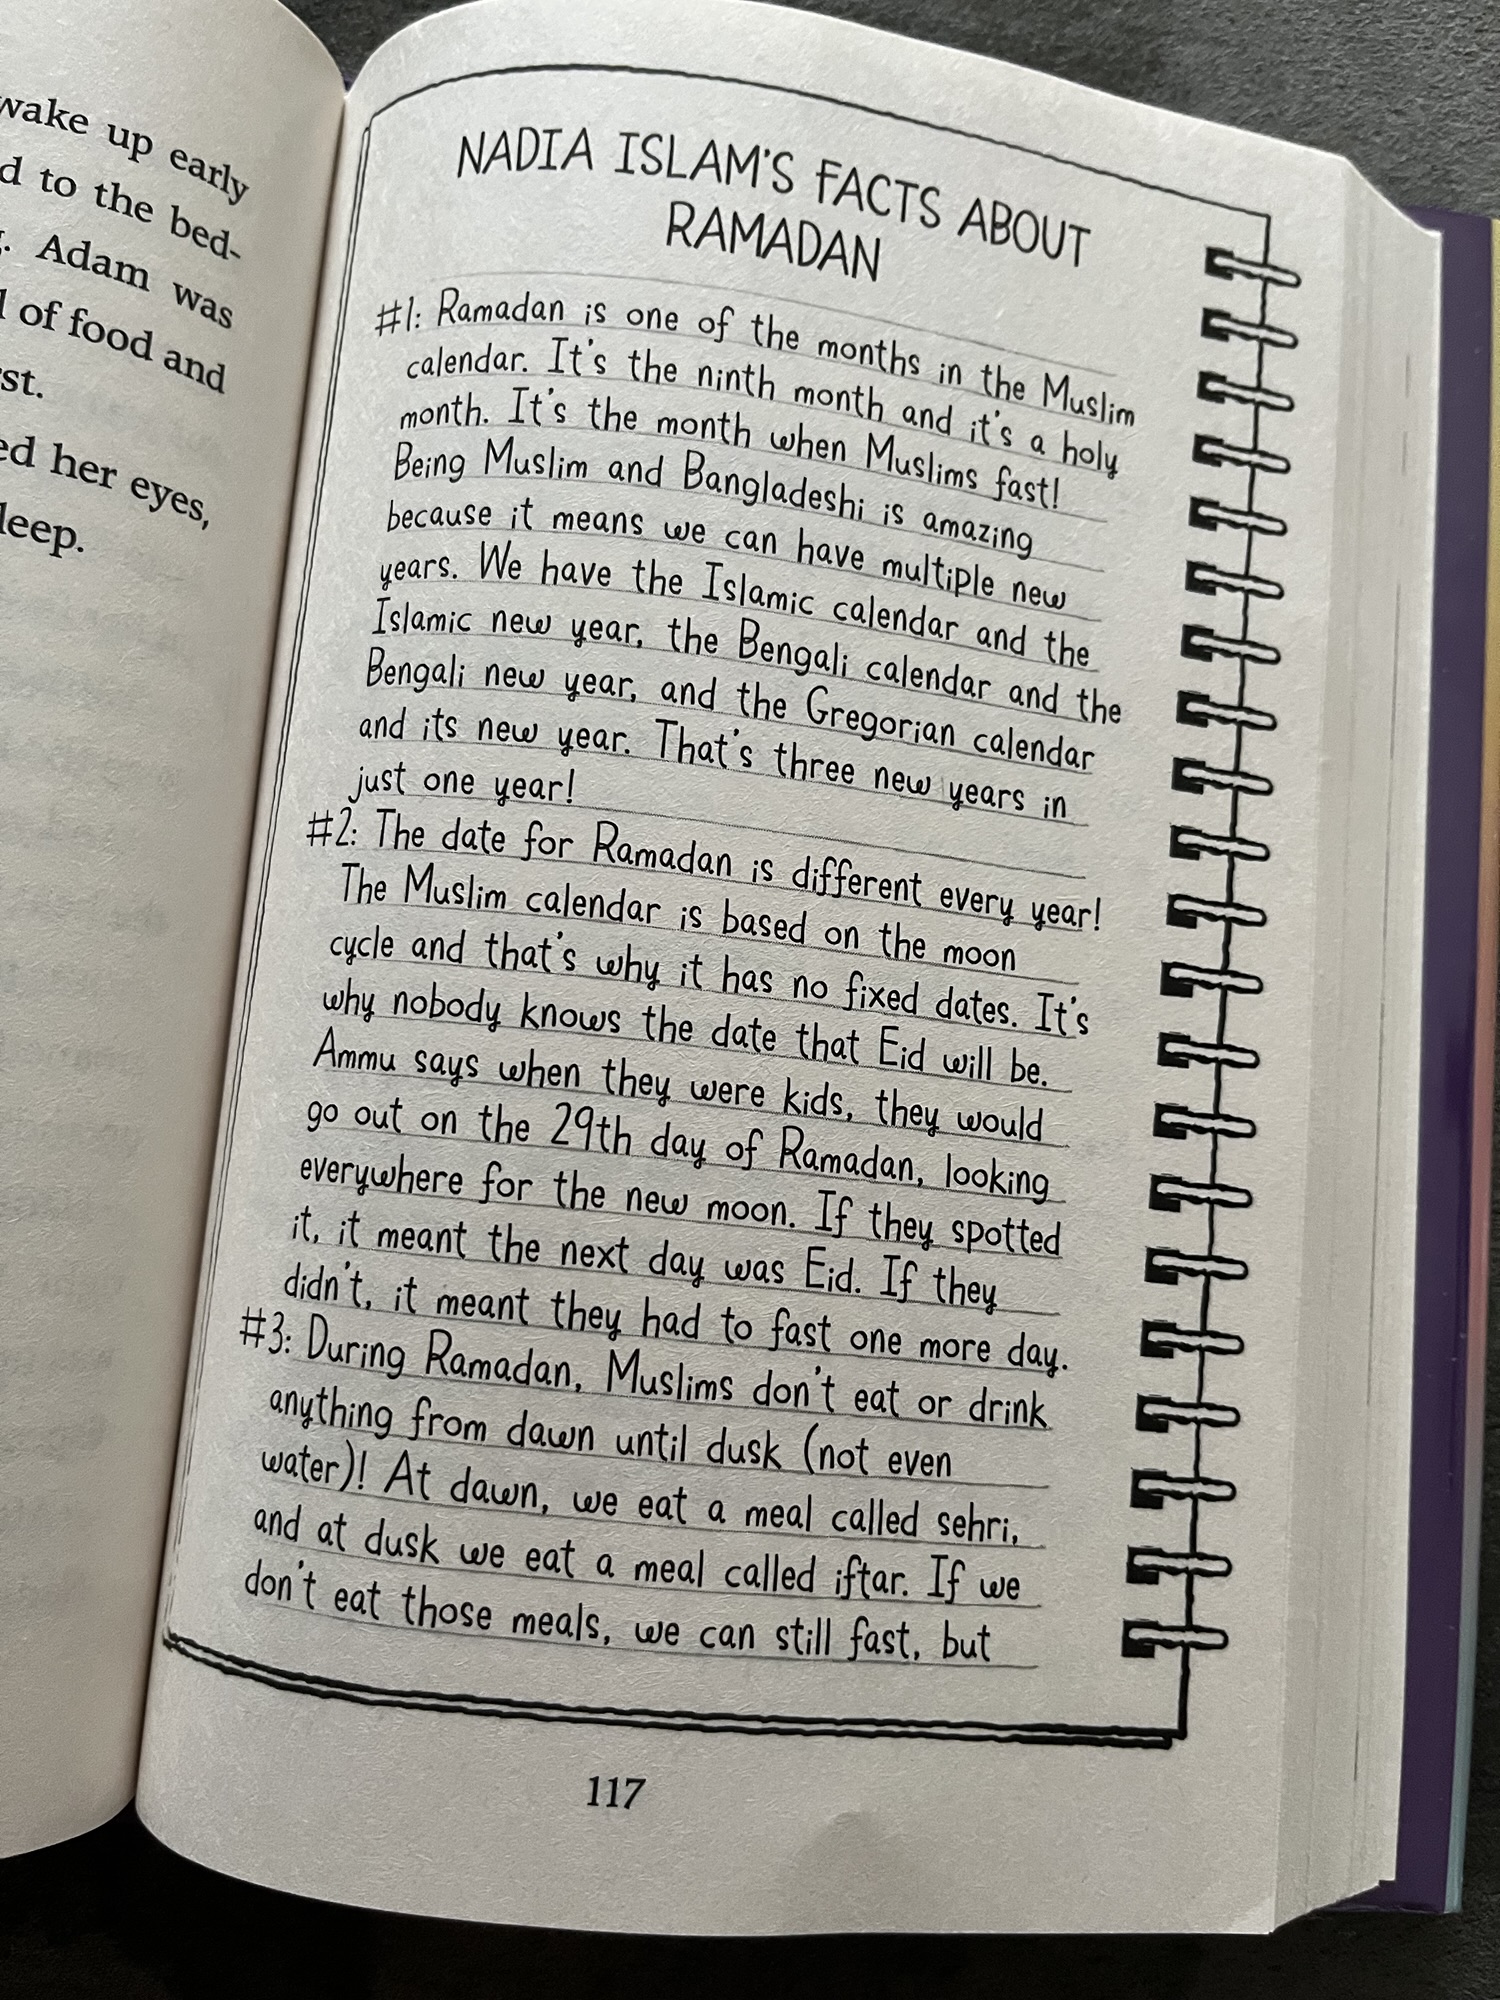 wake up early
to the bed-
Adam was
of food and
ed her eyes,
NADIA ISLAM'S FACTS ABOUT
RAMADAN
#1: Ramadan is one of the months in the Muslim
calendar. It's the ninth month and it's a holy
month. It's the month when Muslims fast!
Being Muslim and Bangladeshi is amazing
because it means we can have multiple new
years. We have the Islamic calendar and the
Islamic new year, the Bengali calendar and the
Bengali new year, and the Gregorian calendar
and its new year. That's three new years in
just one year!
#2: The date for Ramadan is different every year!
The Muslim calendar is based on the moon
cycle and that's why it has no fixed dates. It's
why nobody knows the date that Eid will be.
Ammu says when they were kids, they would
go out on the 29th day of Ramadan, looking
everywhere for the new moon. If they spotted
it, it meant the next day was Eid. If they
didn't, it meant they had to fast one more day.
#3: During Ramadan, Muslims don't eat or drink
anything from dawn until dusk (not even
water)! At dawn, we eat a meal called sehri,
and at dusk we eat a meal called iftar. If we
don't eat those meals, we can still fast, but
117